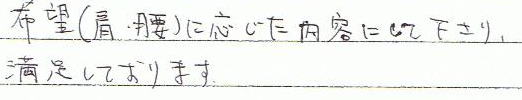 希望(肩・腰)に応じた内容にして下さり、
満足しております